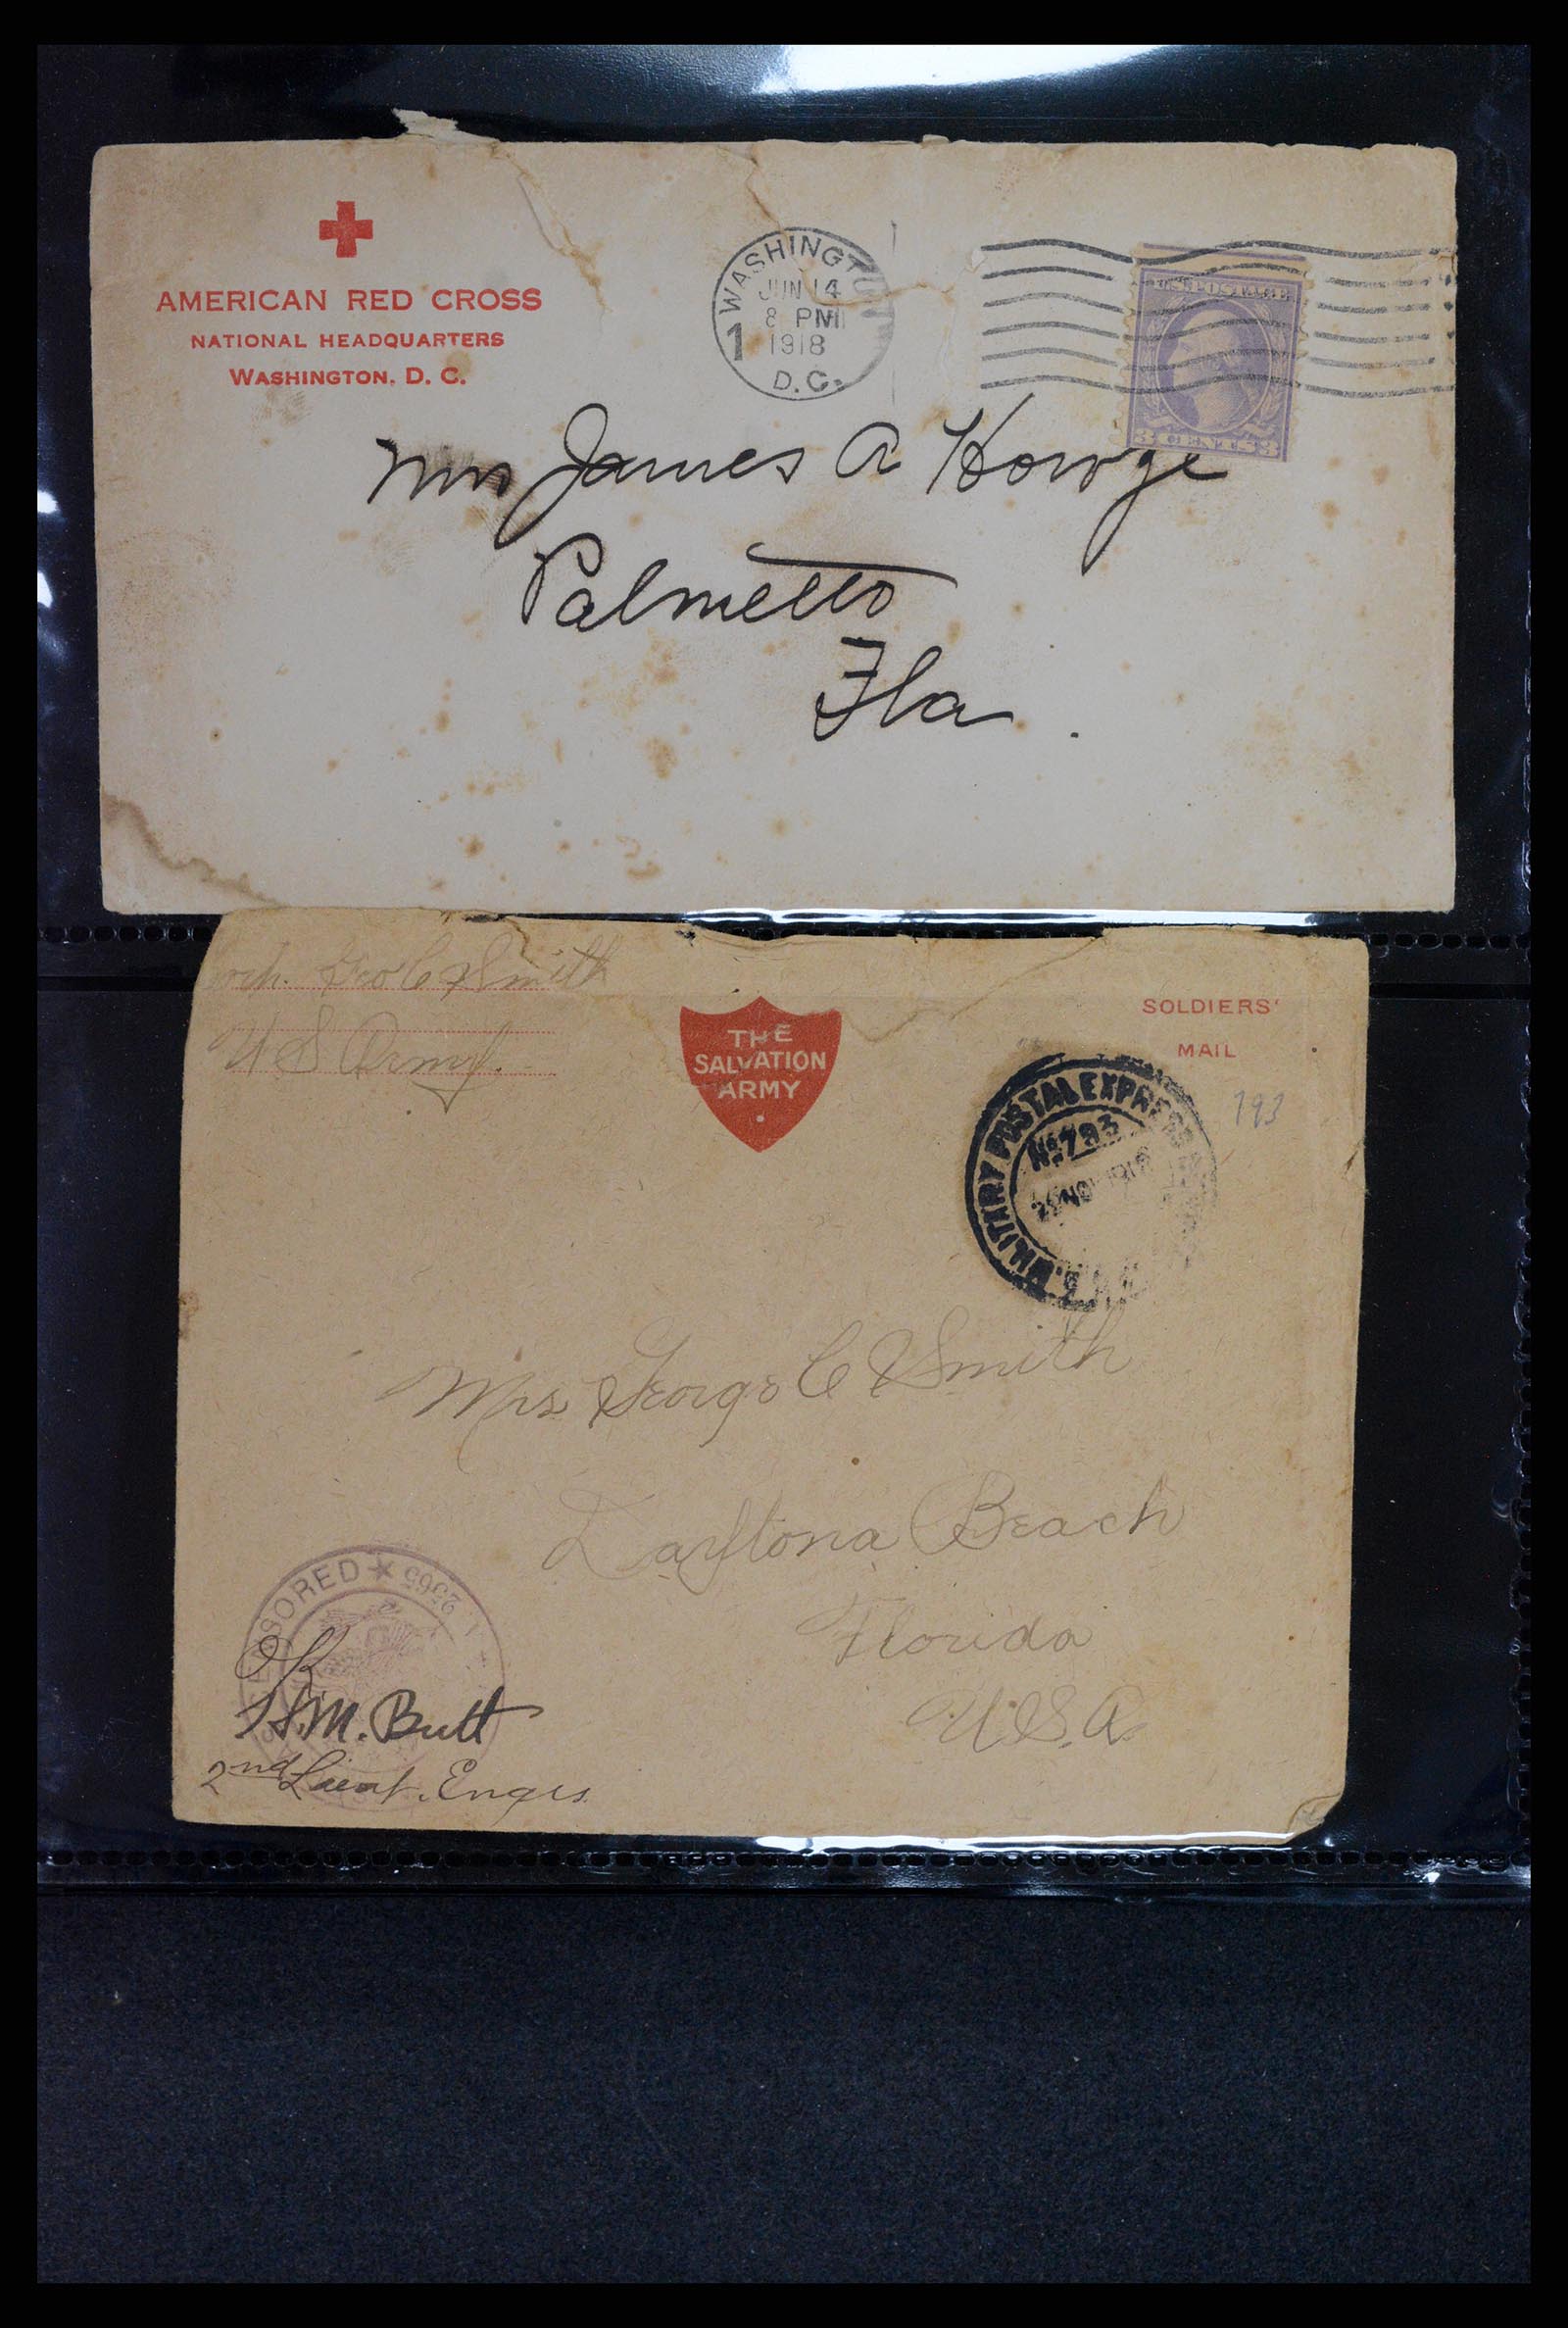 AMERICAN RED CROSS
NATIONAL HEADQUARTERS
WASHINGTON, D. C.
WASHINGTON
JUN 14
8 PM
1918
1
D.C.
U.S. POSTAGE
3 CENTS 3
Mrs James A Howze
Palmetto
Fla.
Geo C Smith
U S Army.
THE
SALVATION
ARMY
SOLDIERS'
MAIL
793
MILITARY POSTAL EXPRESS
No 793
NOV 1918
Mrs George C Smith
Daytona Beach
Florida
U.S.A.
CENSORED ★ 2565
OK
H.M. Butt
2nd Lieut. Engrs